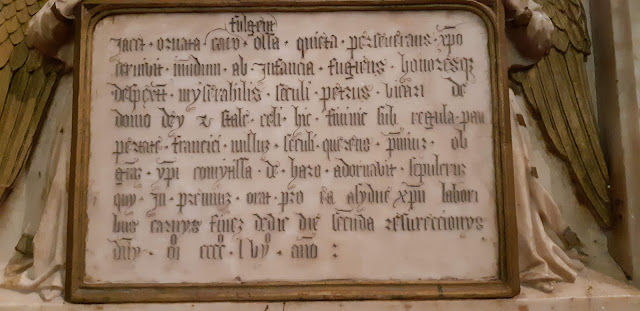 fulgent
Jacet · ornata · ossa · quieta · perseverans · xpo
servivit · mundum · ab · Infancia · fugiens · honoresque
despexit · myserabilis · seculi · petrus · vicari · de
domo · dey · z · scale · celi · hic · sub · regula · pau
pertate · francici · nullus · seculi · querens · ob
xpi · comytissa · de · haro · adornavit · sepulcruz
quy · In · premiuz · orat · pro · ea · asydue · xpm · labori
bus · carnys · finez · dedit · die · secunda · resureccionys
dny · cccc · lvi · ano :